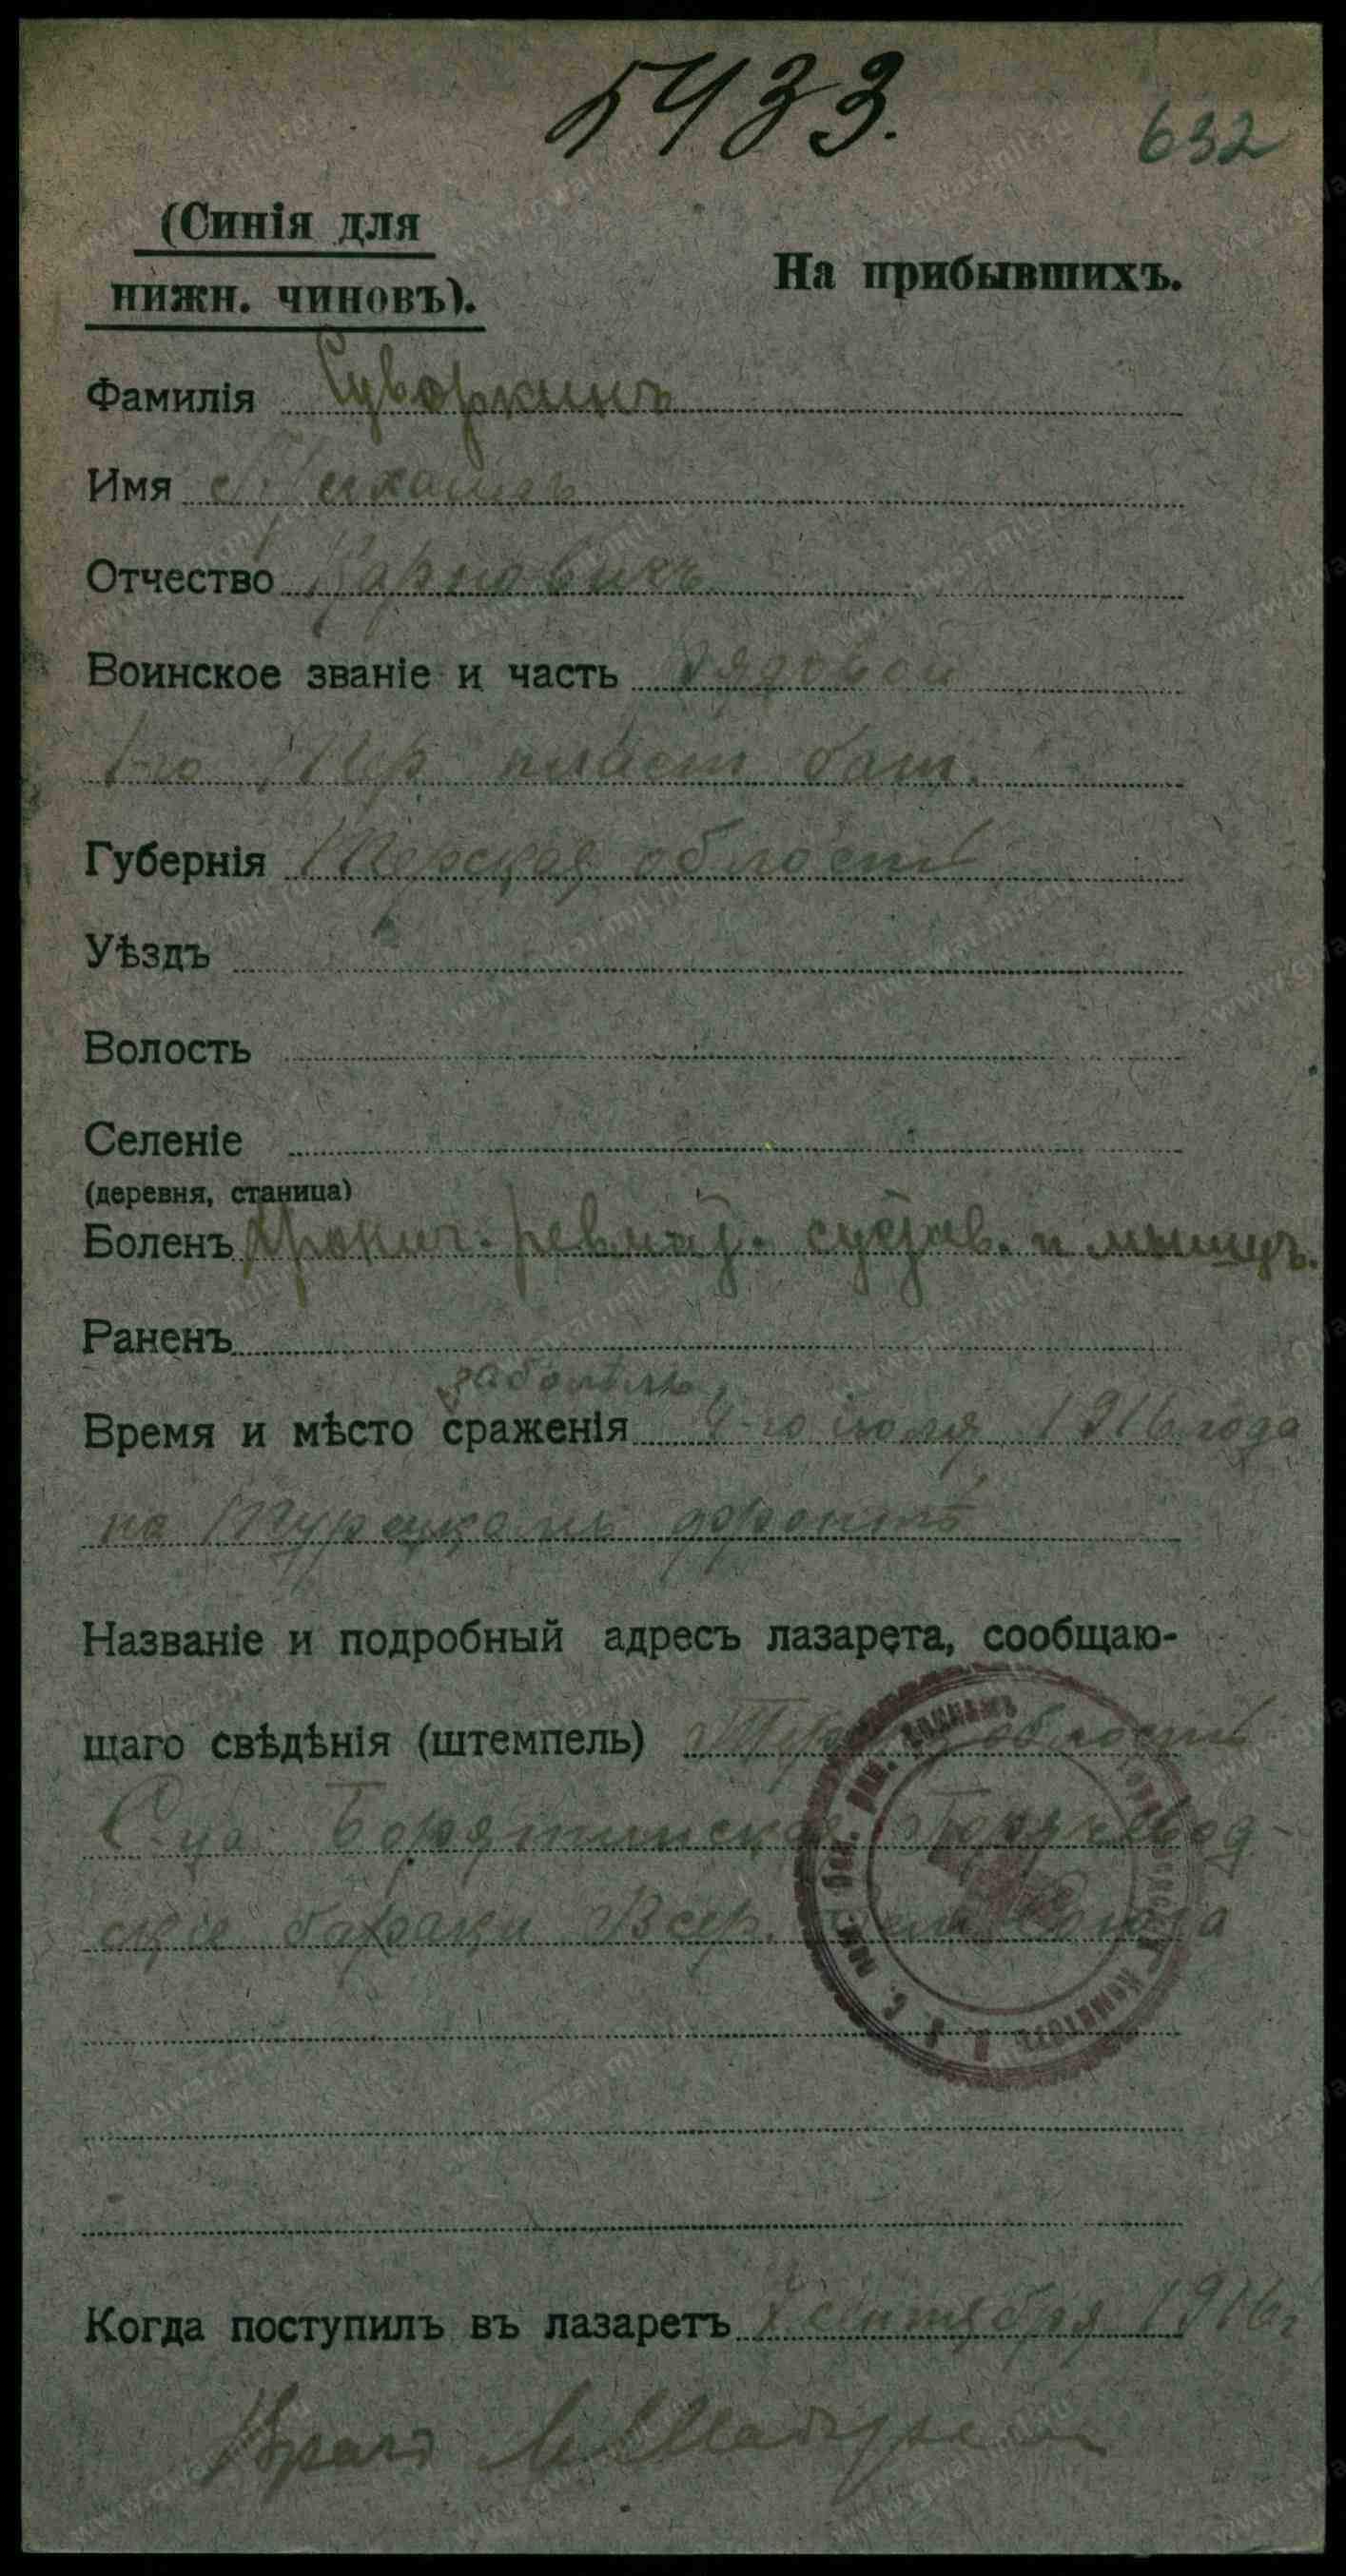 5433.
632
(Синія для
нижн. чиновъ).
На прибывшихъ.
Фамилія Суворкинъ
Имя Михаилъ
Отчество Карповичъ
Воинское званіе и часть Рядовой
1-го Тер. пласт. бат.
Губернія Терская область
Уѣздъ
Волость
Селеніе
(деревня, станица)
Боленъ Хронич. ревмат. сустав. и мышцъ.
Раненъ
заболѣлъ
Время и мѣсто сраженія 4-го іюля 1916 года
на Турецкомъ фронтѣ
Названіе и подробный адресъ лазарета, сообщаю-
щаго свѣдѣнія (штемпель) Тер. область
С-ца Борятинская Горячевод-
скіе бараки Всер. Зем. Союза
Когда поступилъ въ лазаретъ сентября 1916 г
Врачъ